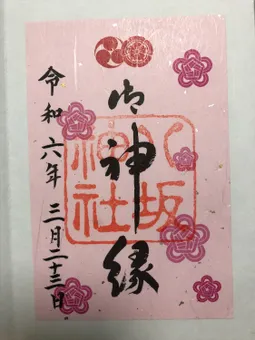 御神縁
八坂
神社
令和六年 三月二十三日